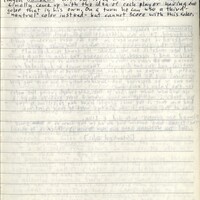 finally came up with the idea of each player having one
color that is his own. On a turn he can use a third
"neutral" color instead - but cannot score with this color.